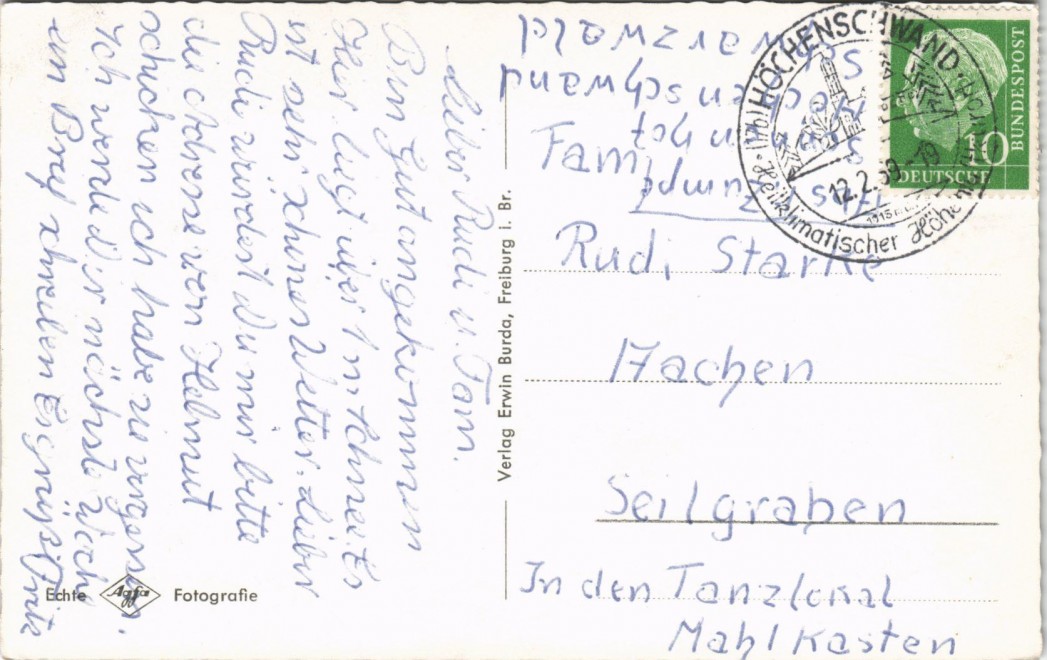 Lieber Rudi u. Fam.
Bin gut angekommen
Hier liegt über 1 m Schnee. Es
ist sehr schönes Wetter. Lieber
Rudi würdest Du mir bitte
die Adresse von Helmut
schicken ich habe sie vergessen.
Ich werde dir nächste Woche
ein Brief schreiben Es grüßt
Echte Agfa Fotografie
Verlag Erwin Burda, Freiburg i. Br.
Schwarzwald
Höchenschwand
Fam
Rudi Starke
Aachen
Seilgraben
In den Tanzlokal
Mahlkasten
HÖCHENSCHWAND
12.2.58-19
Heilklimatischer Höhen
10
DEUTSCHE
BUNDESPOST